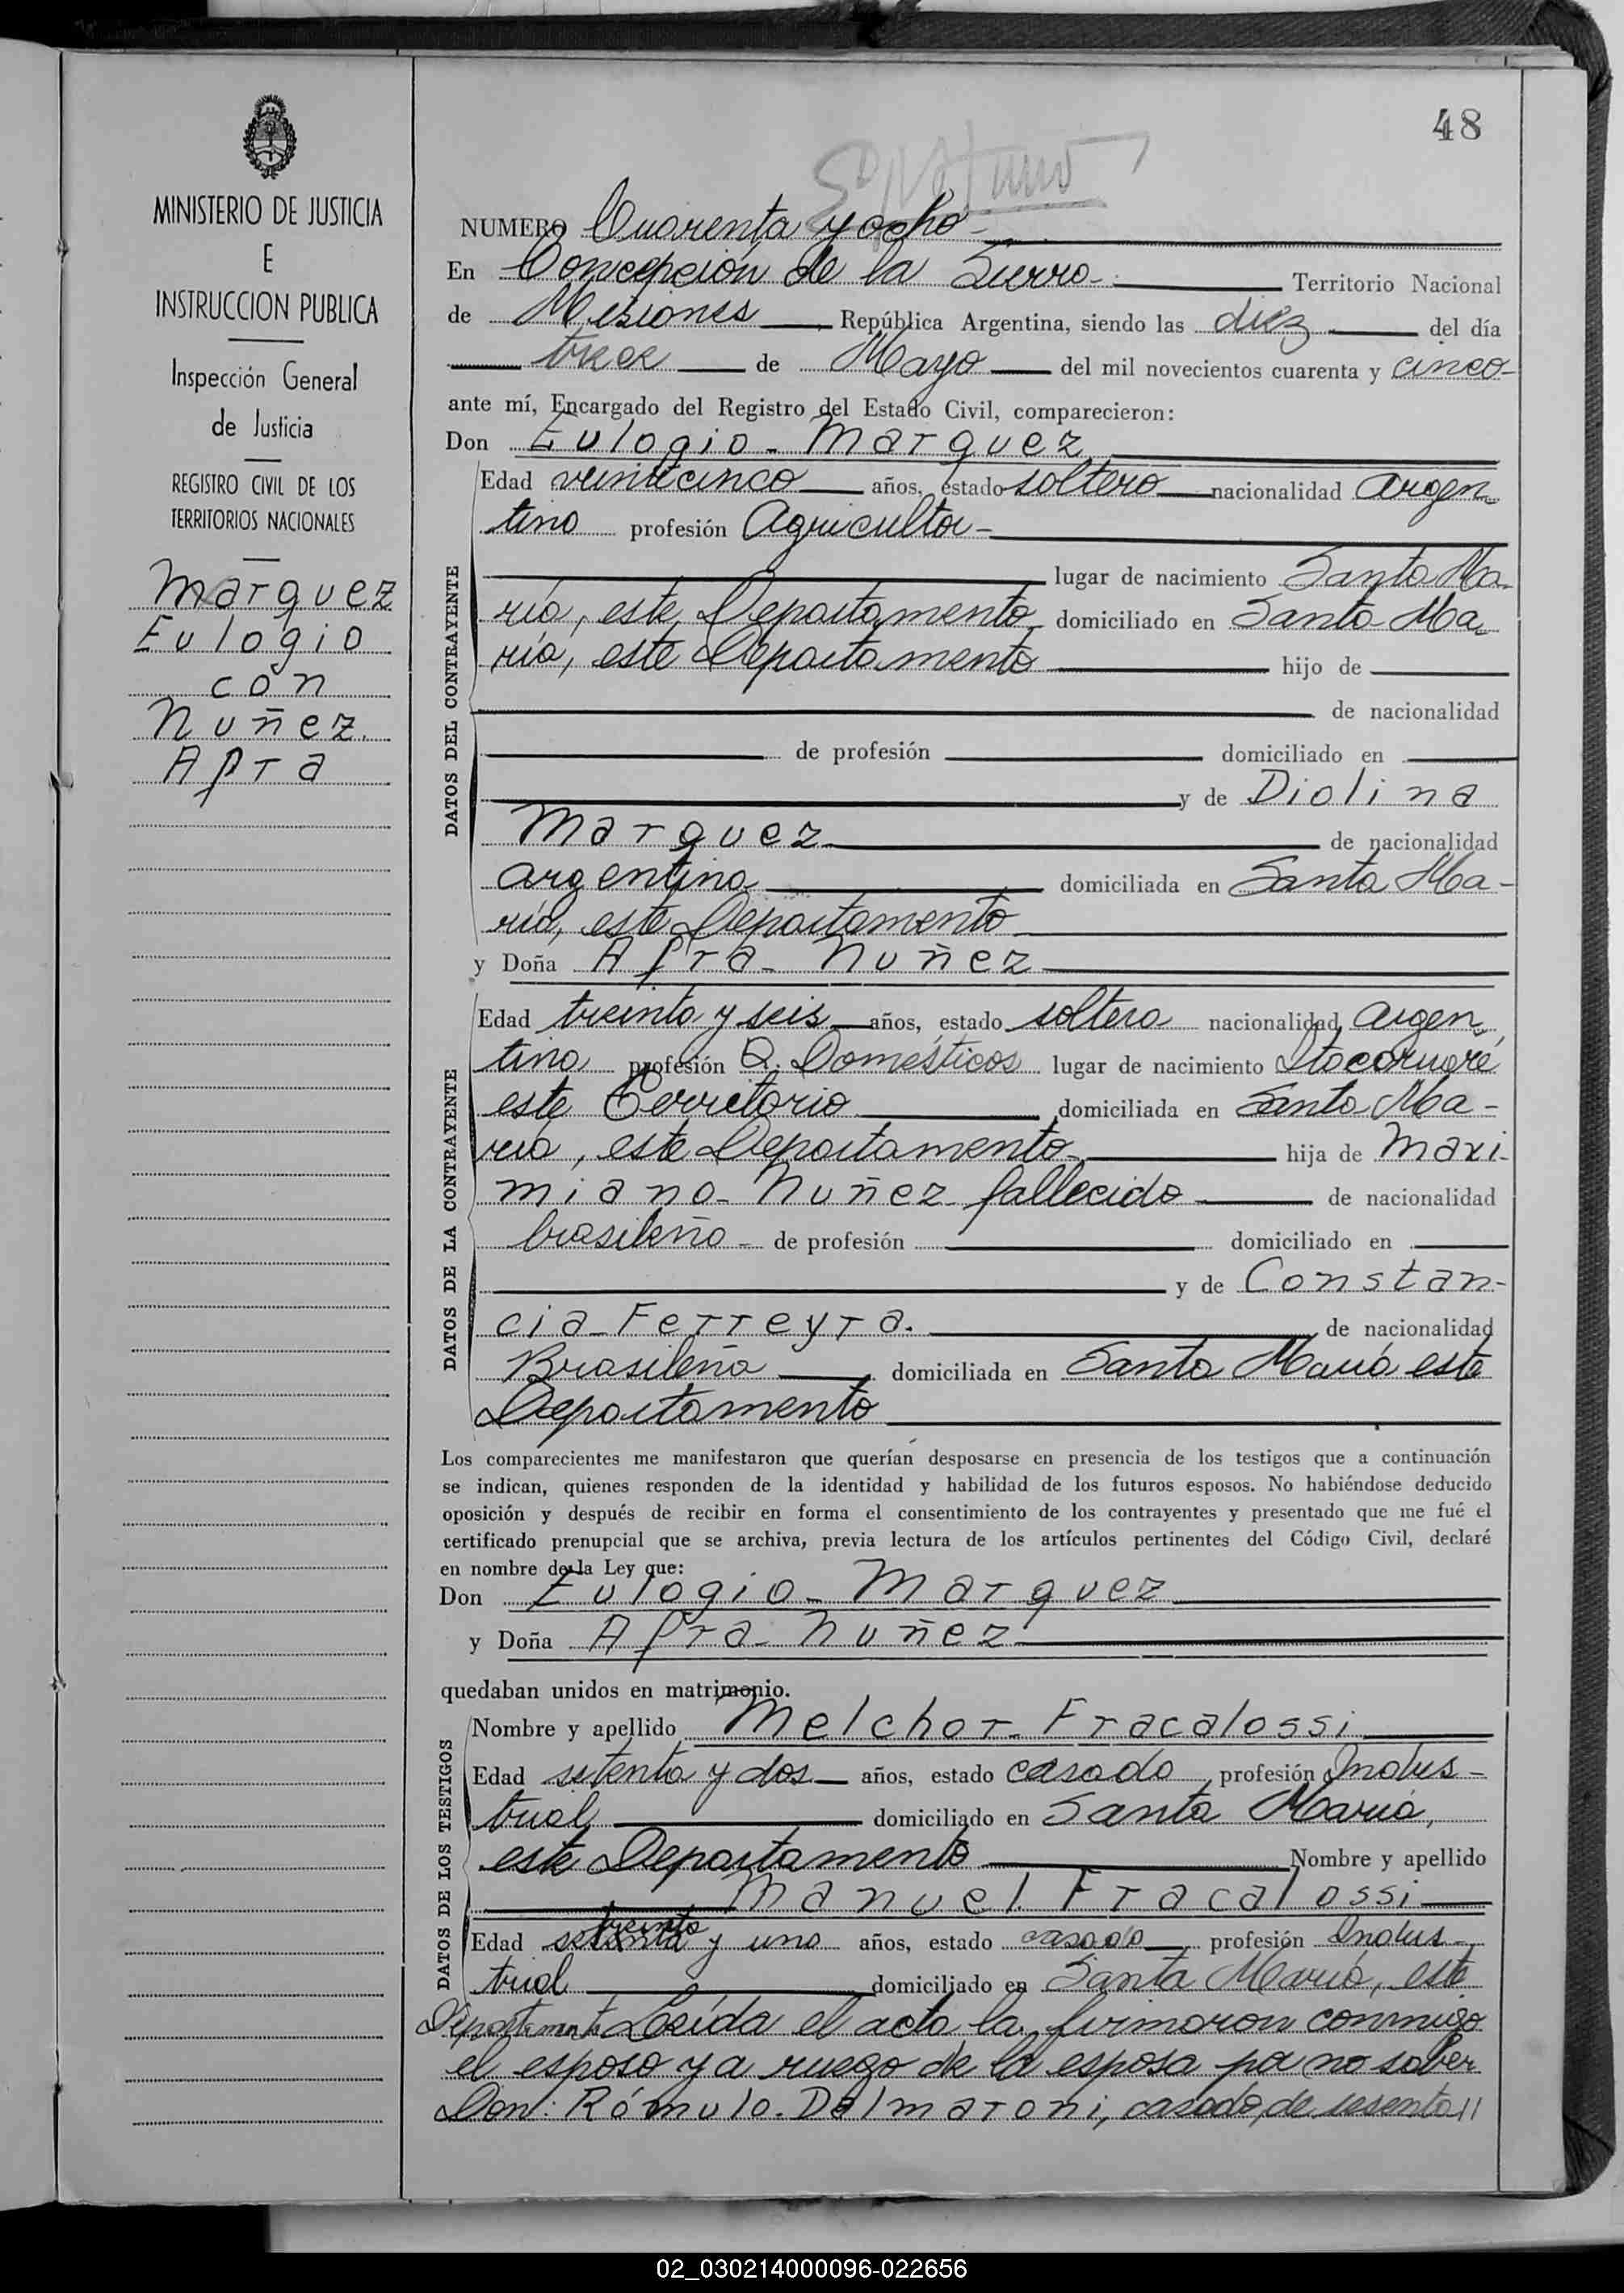 48
MINISTERIO DE JUSTICIA
E
INSTRUCCION PUBLICA
Inspección General
de Justicia
REGISTRO CIVIL DE LOS
TERRITORIOS NACIONALES
Marquez
Eulogio
con
Nuñez.
Afra
NUMERO Cuarenta y ocho
En Concepción de la Sierra Territorio Nacional
de Misiones República Argentina, siendo las diez del día
trece de Mayo del mil novecientos cuarenta y cinco
ante mí, Encargado del Registro del Estado Civil, comparecieron:
Don Eulogio Marquez
Edad veinticinco años, estado soltero nacionalidad argen
tino profesión Agricultor
lugar de nacimiento Santa Ma
ría, este Departamento domiciliado en Santa Ma
ría, este Departamento hijo de
de nacionalidad
de profesión domiciliado en
y de Diolina
Marquez de nacionalidad
argentina domiciliada en Santa Ma-
ría, este Departamento
y Doña Afra Nuñez
DATOS DEL CONTRAYENTE
Edad treinta y seis años, estado soltera nacionalidad argen
tina profesión Q. Domésticos lugar de nacimiento Itacaruaré
este Territorio domiciliada en Santa Ma-
ría, este Departamento hija de Maxi-
miano Nuñez fallecido de nacionalidad
brasileño de profesión domiciliado en
y de Constan-
cia Ferreyra. de nacionalidad
Brasileña domiciliada en Santa María este
Departamento
DATOS DE LA CONTRAYENTE
Los comparecientes me manifestaron que querían desposarse en presencia de los testigos que a continuación
se indican, quienes responden de la identidad y habilidad de los futuros esposos. No habiéndose deducido
oposición y después de recibir en forma el consentimiento de los contrayentes y presentado que me fué el
certificado prenupcial que se archiva, previa lectura de los artículos pertinentes del Código Civil, declaré
en nombre de la Ley que:
Don Eulogio Marquez
y Doña Afra Nuñez
quedaban unidos en matrimonio.
Nombre y apellido Melchor Fracalossi
Edad setenta y dos años, estado casado profesión Indus-
trial domiciliado en Santa María,
este Departamento Nombre y apellido
Manuel Fracalossi
treinta
Edad y uno años, estado casado profesión Indus-
trial domiciliado en Santa María, este
DATOS DE LOS TESTIGOS
Departamento Leída el acta la firmaron conmigo
el esposo y a ruego de la esposa por no saber
Don: Rómulo Dalmaroni, casado, de sesenta //
02_030214000096-022656